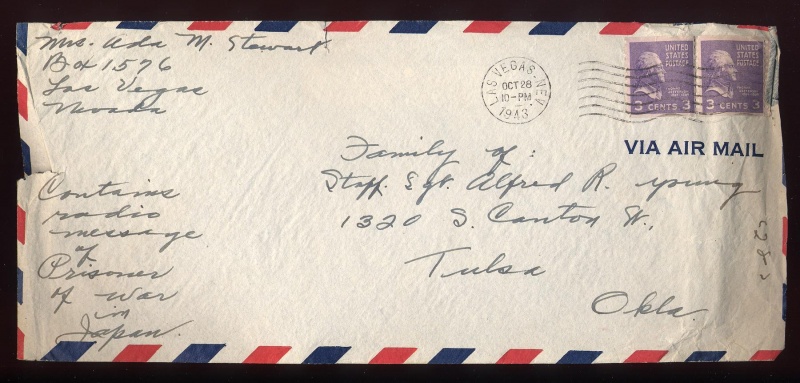 Mrs. Ada M. Stewart
Box 1576
Las Vegas
Nevada
LAS VEGAS, NEV.
OCT 28
10-PM
1943
UNITED
STATES
POSTAGE
3 CENTS 3
UNITED
STATES
POSTAGE
3 CENTS 3
VIA AIR MAIL
Family of:
Staff. Sgt. Alfred R. Young
1320 S. Canton St.,
Tulsa
Okla.
Contains
radio
message
of
Prisoner
of war
in
Japan.